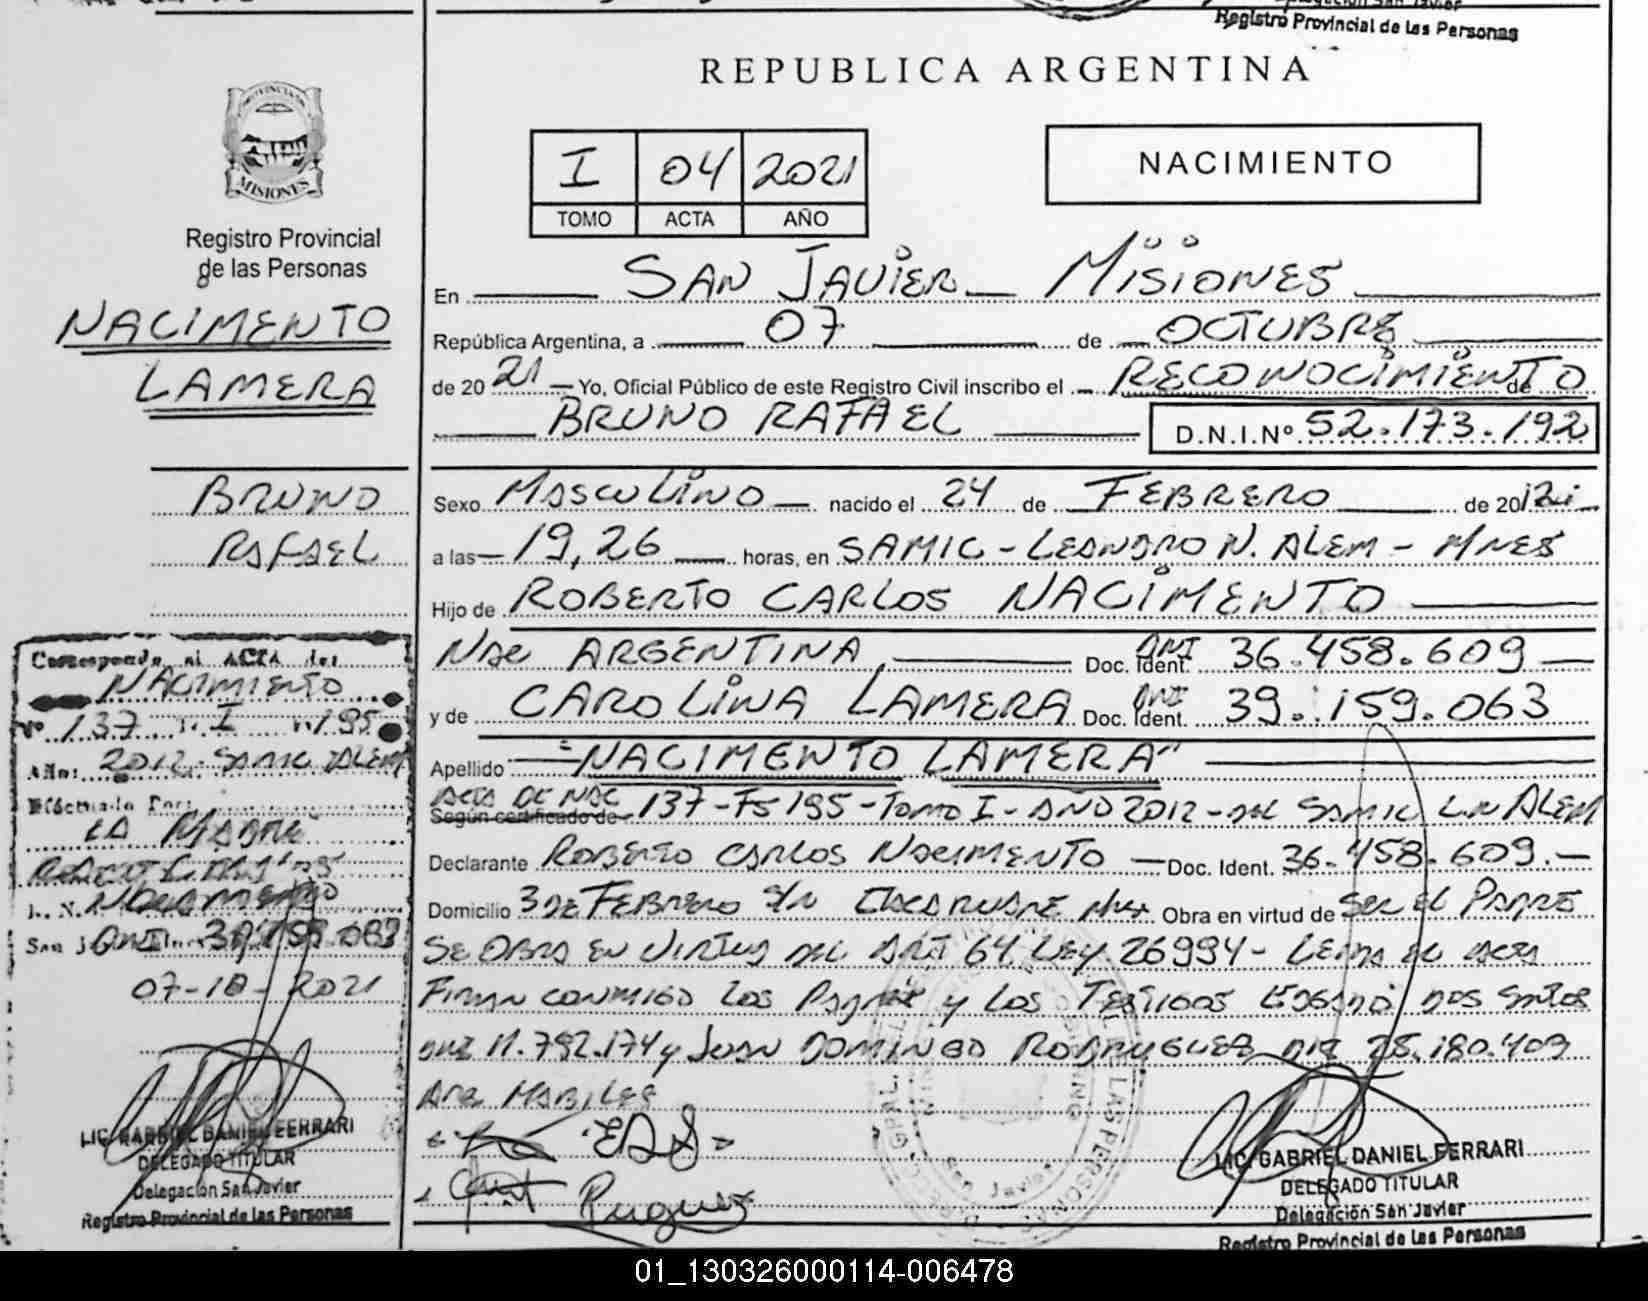 Registro Provincial de las Personas
REPUBLICA ARGENTINA
PROVINCIA DE
MISIONES
Registro Provincial
de las Personas
NACIMENTO
LAMERA
BRUNO
RAFAEL
I 04 2021
TOMO ACTA AÑO
NACIMIENTO
En SAN JAVIER MISIONES
República Argentina, a 07 de OCTUBRE
de 20 21 Yo, Oficial Público de este Registro Civil inscribo el RECONOCIMIENTO de
BRUNO RAFAEL D.N.I.Nº 52.173.192
Sexo MASCULINO nacido el 24 de FEBRERO de 2012
a las 19,26 horas, en SAMIC - LEANDRO N. ALEM - MNES
Hijo de ROBERTO CARLOS NACIMENTO
Nac ARGENTINA, Doc. Ident. DNI 36.458.609
y de CAROLINA LAMERA Doc. Ident. DNI 39.159.063
Apellido "NACIMENTO LAMERA"
Según certificado de ACTA DE NAC 137-Fs 195-TOMO I-AÑO 2012-DEL SAMIC L.N ALEM
Declarante ROBERTO CARLOS NACIMENTO Doc. Ident. 36.458.609.
Domicilio 3 DE FEBRERO S/N Obra en virtud de SER EL PADRE
SE OBRA EN VIRTUD DEL ART 64 LEY 26994 - LEIDA EL ACTA
FIRMAN CONMIGO LOS PADRES y LOS TESTIGOS DOS SANTOS
DNI 11.792.174 y JUAN DOMINGO RODRIGUEZ DNI 25.180.409
ARG
Corresponde al ACTA de:
NACIMIENTO
Nº 137 T. I 195
Año: 2012 SAMIC ALEM
Efectuado Por:
LA MADRE
NACIMENTO
San J
07-10-2021
LIC. GABRIEL DANIEL FERRARI
DELEGADO TITULAR
Delegación San Javier
Registro Provincial de las Personas
San Javier
LIC. GABRIEL DANIEL FERRARI
DELEGADO TITULAR
Delegación San Javier
Registro Provincial de las Personas
01_130326000114-006478